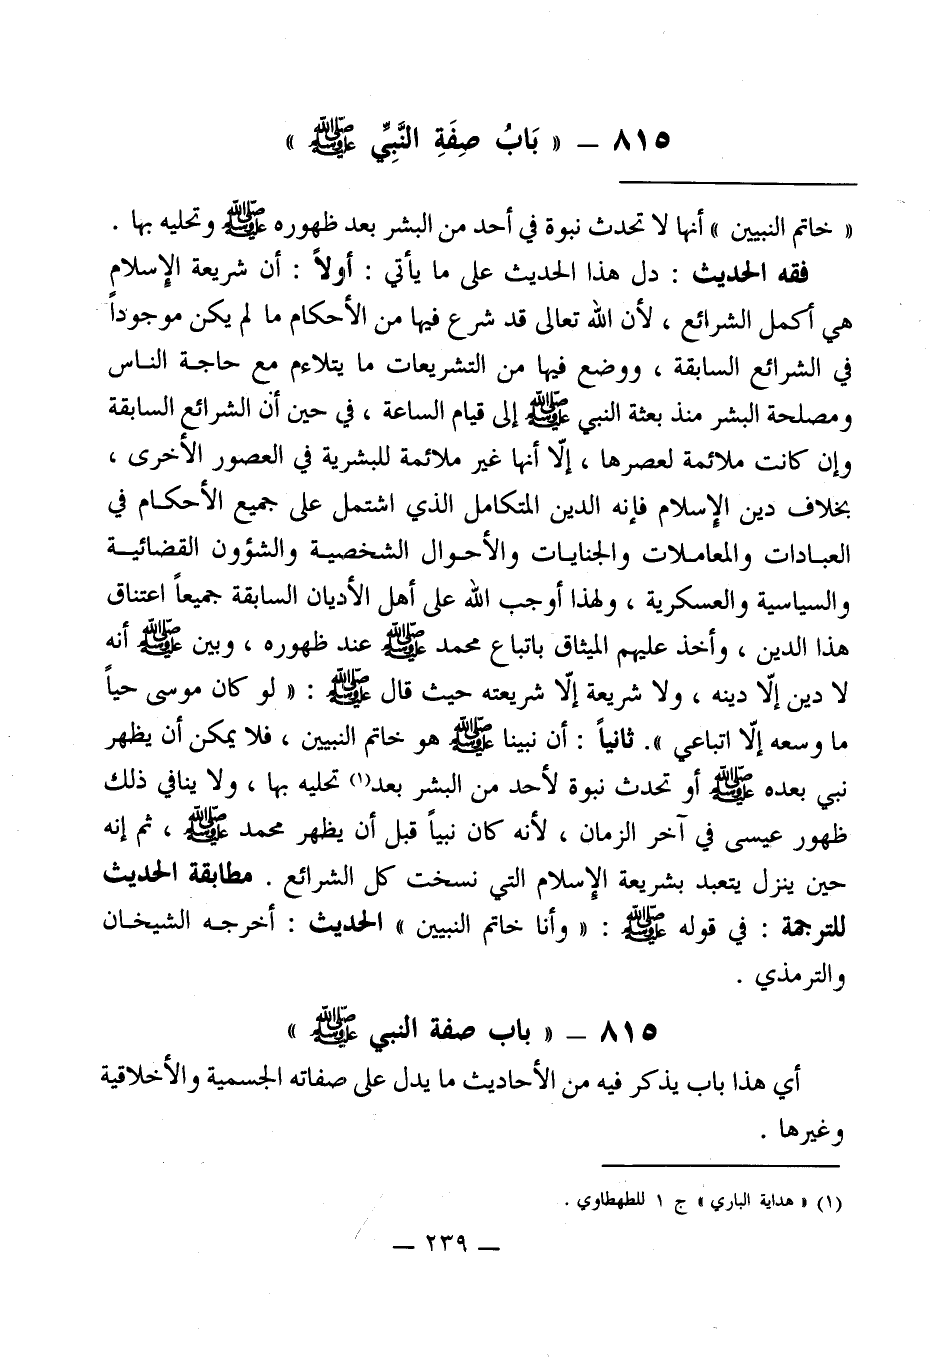 ٨١٥ ـ « بَابُ صِفَةِ النَّبِيِّ ﷺ »
« خاتم النبيين » أنها لا تحدث نبوة في أحد من البشر بعد ظهوره ﷺ وتحليه بها .
فقه الحديث : دل هذا الحديث على ما يأتي : أولاً : أن شريعة الإسلام
هي أكمل الشرائع ، لأن الله تعالى قد شرع فيها من الأحكام ما لم يكن موجوداً
في الشرائع السابقة ، ووضع فيها من التشريعات ما يتلاءم مع حاجة الناس
ومصلحة البشر منذ بعثة النبي ﷺ إلى قيام الساعة ، في حين أن الشرائع السابقة
وإن كانت ملائمة لعصرها ، إلّا أنها غير ملائمة للبشرية في العصور الأخرى ،
بخلاف دين الإسلام فإنه الدين المتكامل الذي اشتمل على جميع الأحكام في
العبادات والمعاملات والجنايات والأحوال الشخصية والشؤون القضائية
والسياسية والعسكرية ، ولهذا أوجب الله على أهل الأديان السابقة جميعاً اعتناق
هذا الدين ، وأخذ عليهم الميثاق باتباع محمد ﷺ عند ظهوره ، وبين ﷺ أنه
لا دين إلّا دينه ، ولا شريعة إلّا شريعته حيث قال ﷺ : « لو كان موسى حياً
ما وسعه إلّا اتباعي ». ثانياً : أن نبينا ﷺ هو خاتم النبيين ، فلا يمكن أن يظهر
نبي بعده ﷺ أو تحدث نبوة لأحد من البشر بعد(١) تحليه بها ، ولا ينافي ذلك
ظهور عيسى في آخر الزمان ، لأنه كان نبياً قبل أن يظهر محمد ﷺ ، ثم إنه
حين ينزل يتعبد بشريعة الإسلام التي نسخت كل الشرائع . مطابقة الحديث
للترجمة : في قوله ﷺ : « وأنا خاتم النبيين » الحديث : أخرجه الشيخان
والترمذي .
٨١٥ ـ « باب صفة النبي ﷺ »
أي هذا باب يذكر فيه من الأحاديث ما يدل على صفاته الجسمية والأخلاقية
وغيرها .
(١) « هداية الباري » ج ١ للطهطاوي .
ـ ٢٣٩ ـ